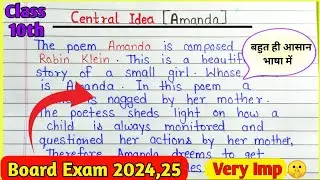 Class
10th
Central Idea [Amanda]
The poem Amanda is composed
Robin Klein. This is a beautif
story of a small girl. Whose
is Amanda. In this poem a
is nagged by her mother.
The poetess sheds light on how a
child is always monitored and
questioned her actions by her mother.
Therefore Amanda dreems to get
बहुत ही आसान
भाषा में
Board Exam 2024,25
Very Imp